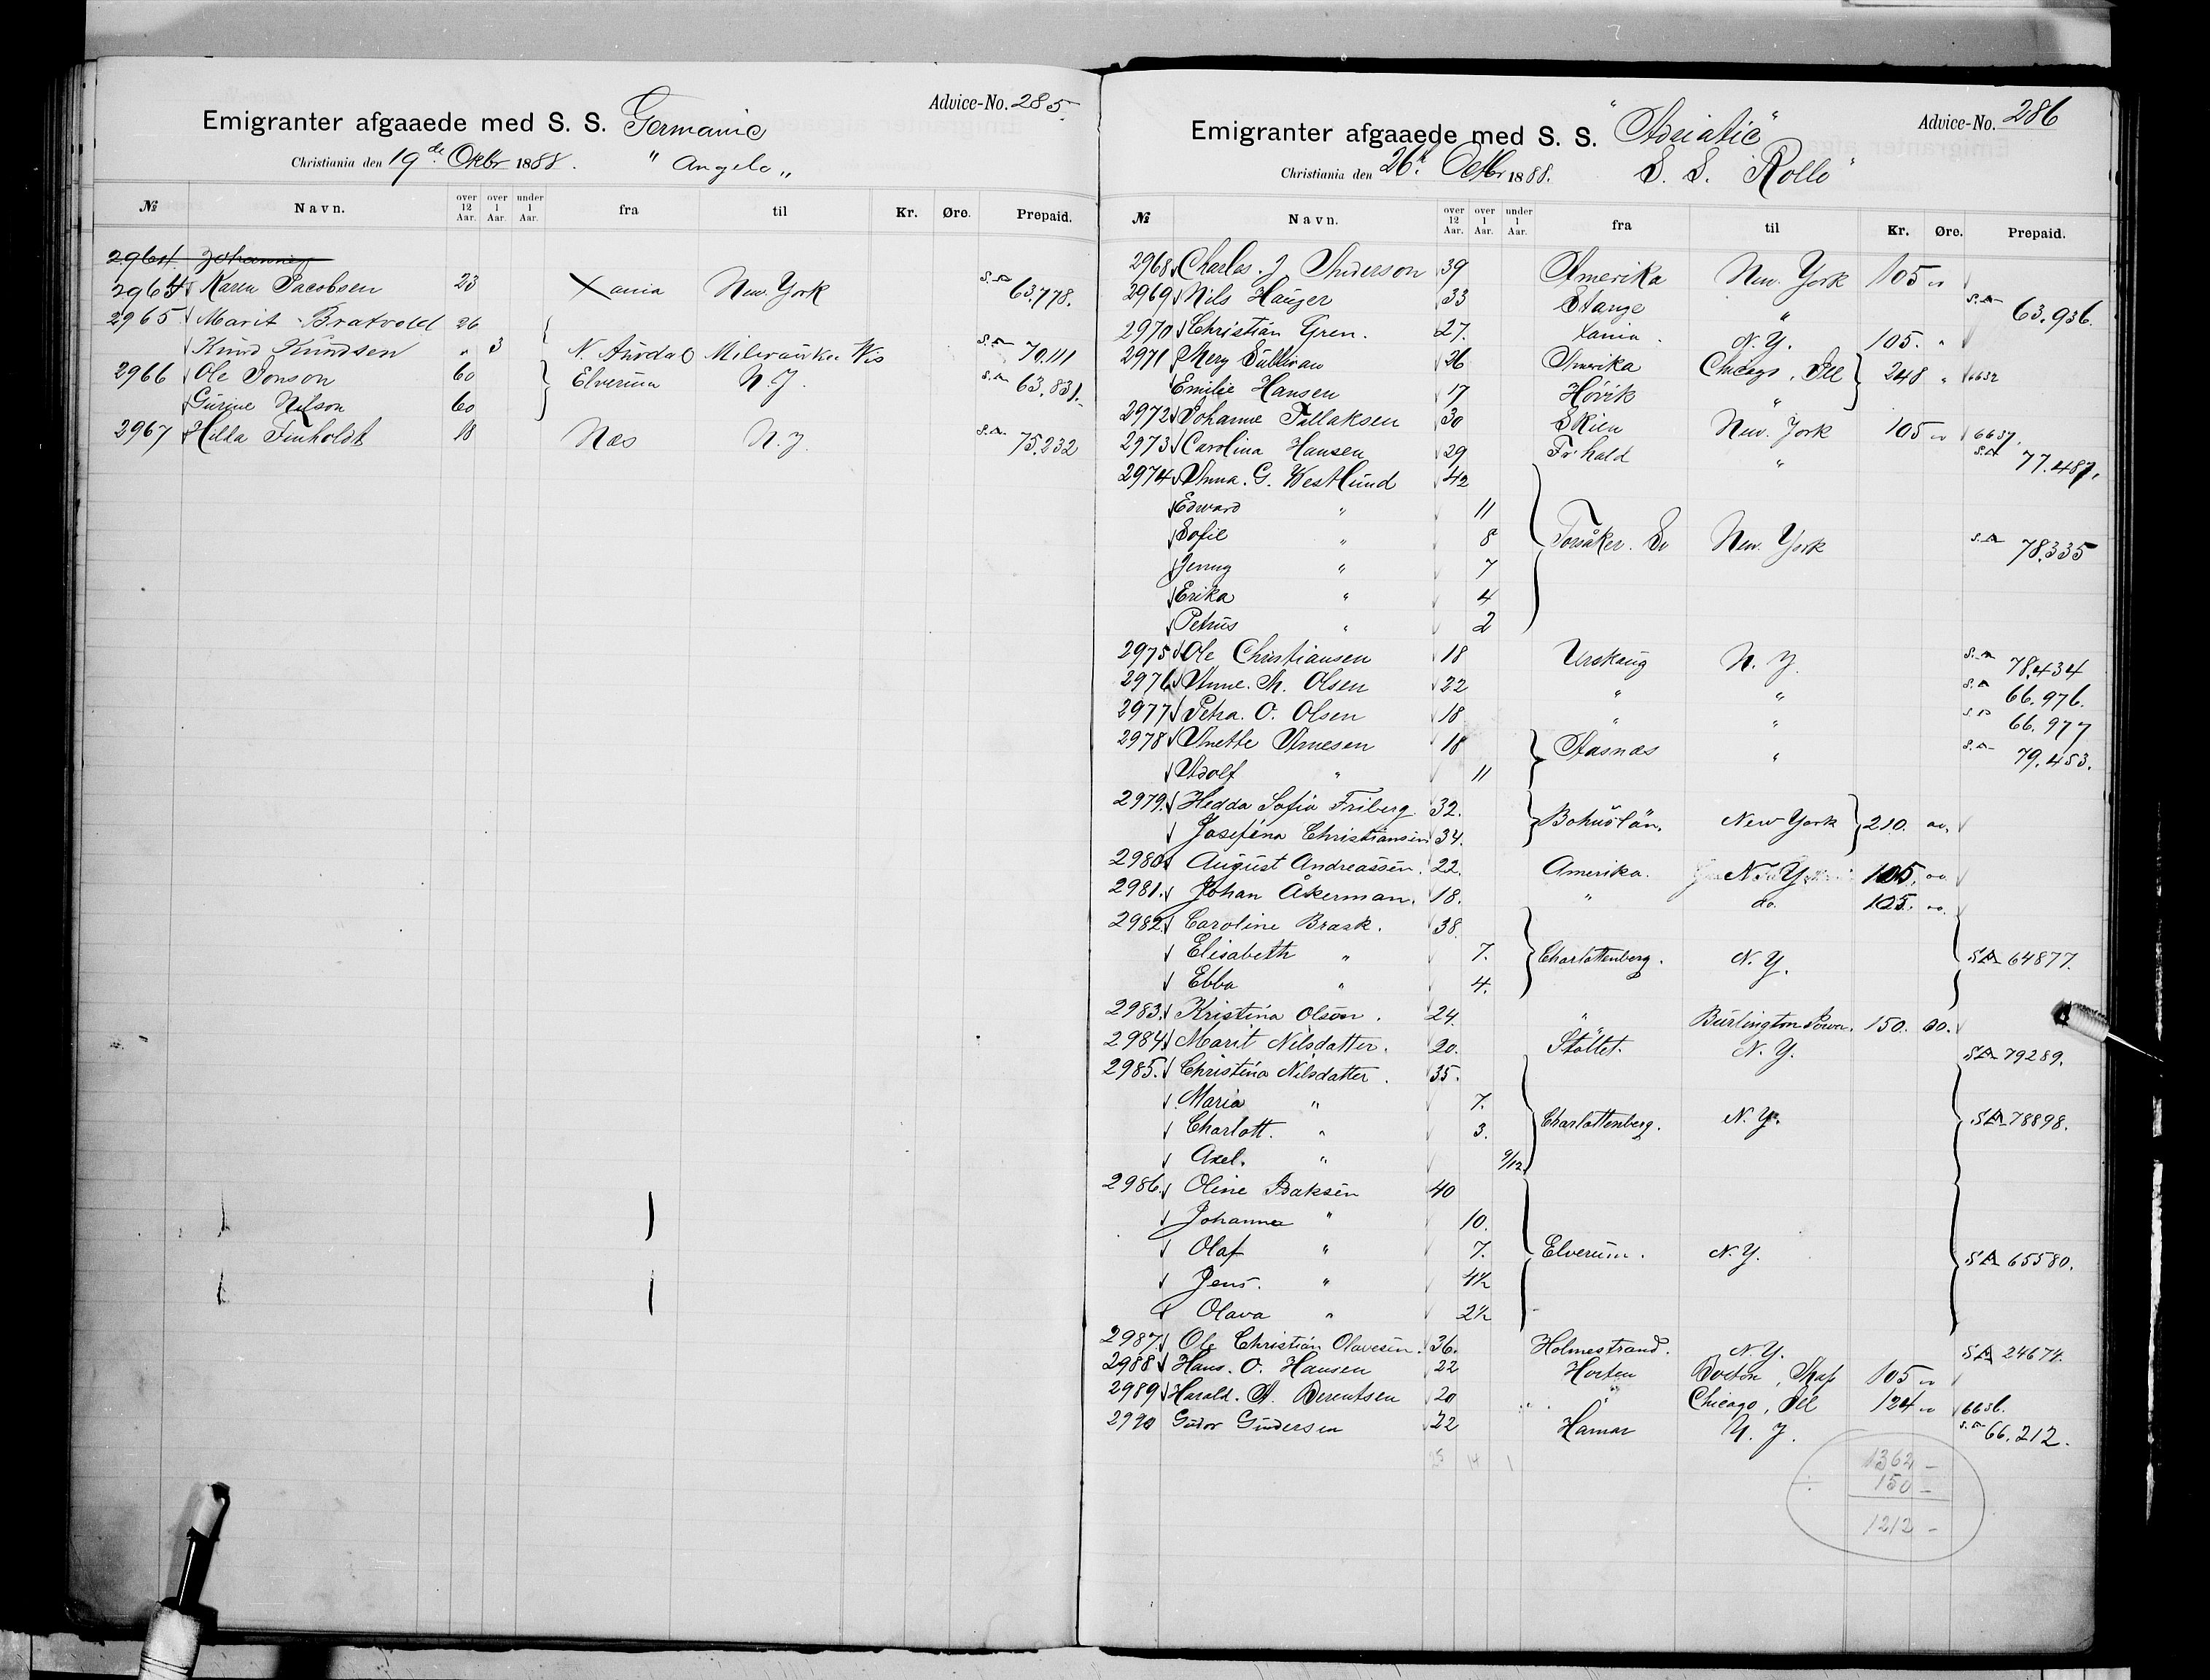 Advice-No. 285.
Emigranter afgaaede med S. S. Germanic
Christiania den 19de Oktbr 1888. "Angelo"
№ Navn. over 12 Aar. over 1 Aar. under 1 Aar. fra til Kr. Øre. Prepaid.
2964 Johannes
2964 Karen Jacobsen 23 Xania New York S.A. 63,778.
2965 Marit Bratvold 26
Knud Knudsen " 3 N. Aurdal Milwaukee Wis S.A. 70,111
2966 Ole Jonson 60 Elverum N.Y. S.A. 63,831.
Gurine Nilson 60
2967 Hilda Finholdt 18 Næs N.Y. S.A. 75,232
Advice-No. 286
Emigranter afgaaede med S. S. "Adriatic"
Christiania den 26. Octbr 1888. S. S. "Rollo"
№ Navn. over 12 Aar. over 1 Aar. under 1 Aar. fra til Kr. Øre. Prepaid.
2968 Charles J Anderson 39 Amerika New York 105 "
2969 Nils Hauger 33 Stange " S.A. 63.936.
2970 Christian Gren. 27. Xania. N.Y. 105. "
2971 Mery Sullivan 26 Amerika Chicago, Ill 248 " 6632
Emilie Hansen 17 Høvik "
2972 Johanne Tellaksen 30 Skien New York 105 " 6637.
2973 Carolina Hansen 29 Fr.hald " S.A. 77.487,
2974 Anna. G. Westlund 42
Edward " 11
Sofie " 8 Torsåker. Sv New York S.A. 78,335
Jenny " 7
Erika " 4
Petrus " 2
2975 Ole Christiansen 18 Urskaug N.Y. S.A. 78,434
2976 Anne. M. Olsen 22 " " S.A. 66,976.
2977 Petra. O. Olsen 18 " " S.A. 66,977
2978 Anette Arnesen 18 Aasnæs " S.A. 79,453.
Adolf " 11
2979. Hedda Sofia Friberg 32. Bohuslän. New York 210. oo.
Josefina Christiansen 34.
2980 August Andreassen. 22. Amerika. N.Y. 105. oo
2981. Johan Åkerman. 18. " do. 105. oo.
2982 Caroline Brask. 38.
Elisabeth " 7. Charlottenberg. N.Y. SA 64877.
Ebba " 4.
2983. Kristina Olson. 24. " Burlington Iowa. 150. 00.
2984 Marit Nilsdatter. 20. Stöllet. N.Y. SA 79289.
2985. Christina Nilsdatter. 35.
Maria " 7.
Charlott. " 3. Charlottenberg. N.Y. SA 78898.
Axel. " 9/12
2986. Oline Baksen 40
Johanna " 10.
Olaf " 7. Elverum. N.Y. SA 65580.
Jens. " 4½
Olava " 2½
2987. Ole Christian Olavesen. 36. Holmestrand. N.Y. SA 24674.
2988 Hans. O. Hansen 22 Horten Boston, 105 "
2989 Harald. A. Berentsen 20 " Chicago, Ill 124 " 6636.
2990 Gudor Gundersen 22 Hamar N.Y. S.A. 66.212.
25 14 1
1362 -
÷ 150 -
1212 -